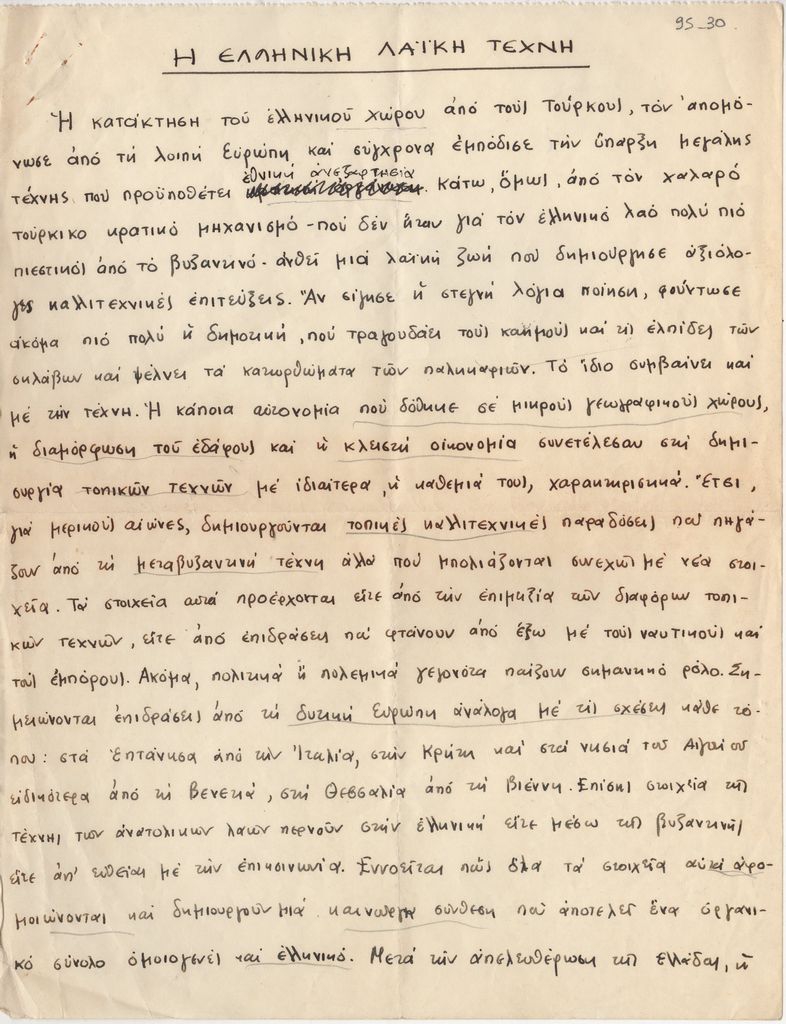 95-30
Η ΕΛΛΗΝΙΚΗ ΛΑΪΚΗ ΤΕΧΝΗ
Ἡ κατάκτηση τοῦ ἑλληνικοῦ χώρου ἀπό τούς Τούρκους, τόν ἀπομό-
νωσε ἀπό τή λοιπή Εὐρώπη καί σύγχρονα ἐμπόδισε τήν ὕπαρξη μεγάλης
ἐθνική ἀνεξαρτησία
τέχνης πού προϋποθέτει Κάτω, ὅμως, ἀπό τόν χαλαρό
τούρκικο κρατικό μηχανισμό - πού δέν ἦταν γιά τόν ἑλληνικό λαό πολύ πιό
πιεστικός ἀπό τό βυζαντινό - ἀνθεῖ μιά λαϊκή ζωή πού δημιούργησε ἀξιόλο-
γες καλλιτεχνικές ἐπιτεύξεις. Ἄν σίγησε ἡ στεγνή λόγια ποίηση, φούντωσε
ἀκόμα πιό πολύ ἡ δημοτική, πού τραγουδάει τούς καημούς καί τίς ἐλπίδες τῶν
σκλάβων καί ψέλνει τά κατωρθώματα τῶν παλικαριῶν. Τό ἴδιο συμβαίνει καί
μέ τήν τέχνη. Ἡ κάποια αὐτονομία πού δόθηκε σέ μικρούς γεωγραφικούς χώρους,
ἡ διαμόρφωση τοῦ ἐδάφους καί ἡ κλειστή οἰκονομία συνετέλεσαν στή δημι-
ουργία τοπικῶν τεχνῶν μέ ἰδιαίτερα, ἡ καθεμιά τους, χαρακτηριστικά. Ἔτσι,
γιά μερικούς αἰώνες, δημιουργοῦνται τοπικές καλλιτεχνικές παραδόσεις πού πηγά-
ζουν ἀπό τή μεταβυζαντινή τέχνη ἀλλά πού μπολιάζονται συνεχῶς μέ νέα στοι-
χεῖα. Τά στοιχεῖα αὐτά προέρχονται εἴτε ἀπό τήν ἐπιμιξία τῶν διαφόρων τοπι-
κῶν τεχνῶν, εἴτε ἀπό ἐπιδράσεις πού φτάνουν ἀπό ἔξω μέ τούς ναυτικούς καί
τούς ἐμπόρους. Ἀκόμα, πολιτικά ἤ πολεμικά γεγονότα παίζουν σημαντικό ρόλο. Ση-
μειώνονται ἐπιδράσεις ἀπό τή δυτική Εὐρώπη ἀνάλογα μέ τίς σχέσεις κάθε τό-
που: στά Ἑπτάνησα ἀπό τήν Ἰταλία, στήν Κρήτη καί στά νησιά τοῦ Αἰγαίου
εἰδικότερα ἀπό τή Βενετιά, στή Θεσσαλία ἀπό τή Βιέννη. Ἐπίσης στοιχεῖα τῆς
τέχνης τῶν ἀνατολικῶν λαῶν περνοῦν στήν ἑλληνική εἴτε μέσω τῆς βυζαντινῆς
εἴτε ἀπ' εὐθείας μέ τήν ἐπικοινωνία. Ἐννοεῖται πώς ὅλα τά στοιχεῖα αὐτά ἀφο-
μοιώνονται καί δημιουργοῦν μιά καινούργια σύνθεση πού ἀποτελεῖ ἕνα ὀργανι-
κό σύνολο ὁμοιογενές καί ἑλληνικό. Μετά τήν ἀπελευθέρωση τῆς Ελλάδας, ἡ